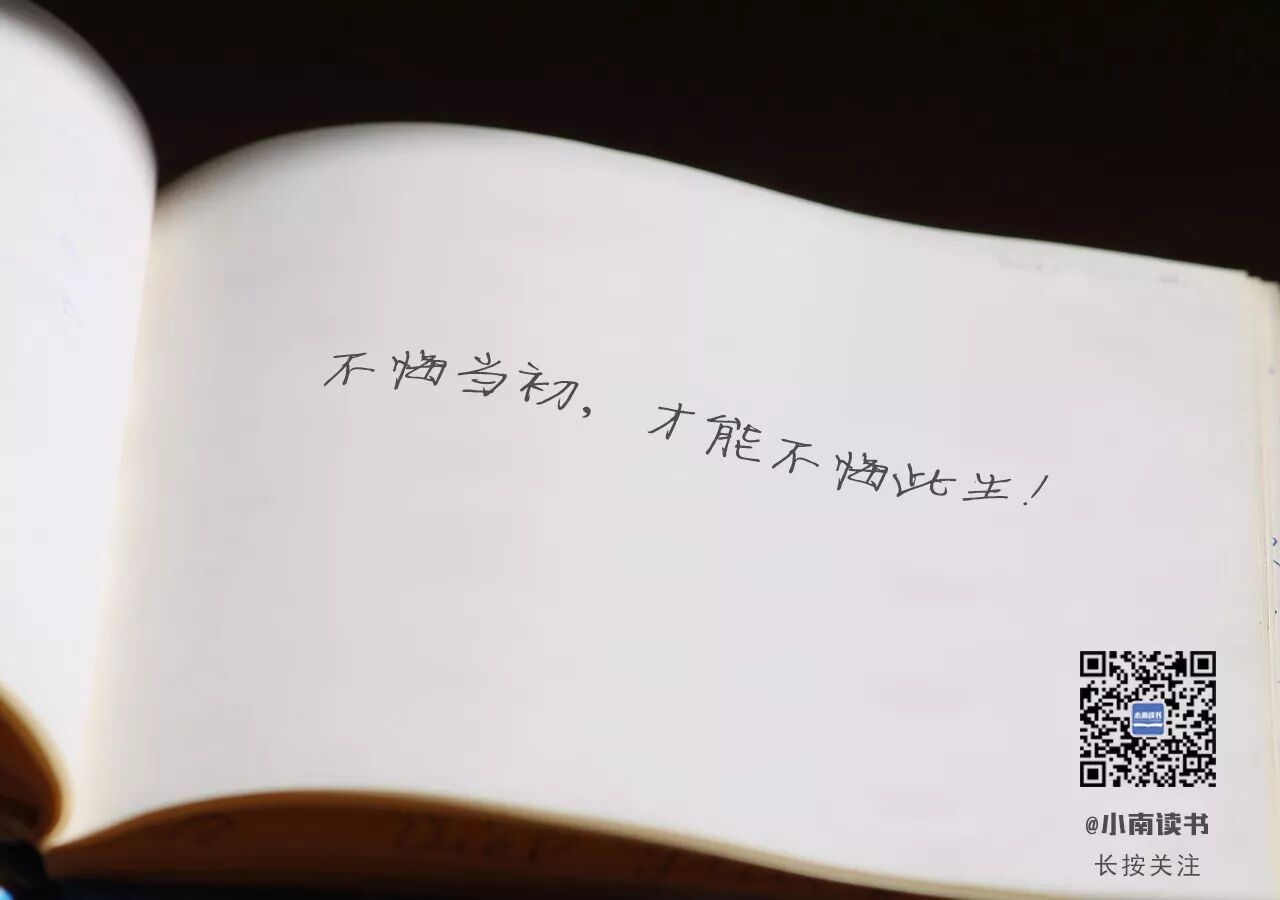 不悔当初，才能不悔此生！
小南读书
@小南读书
长按关注